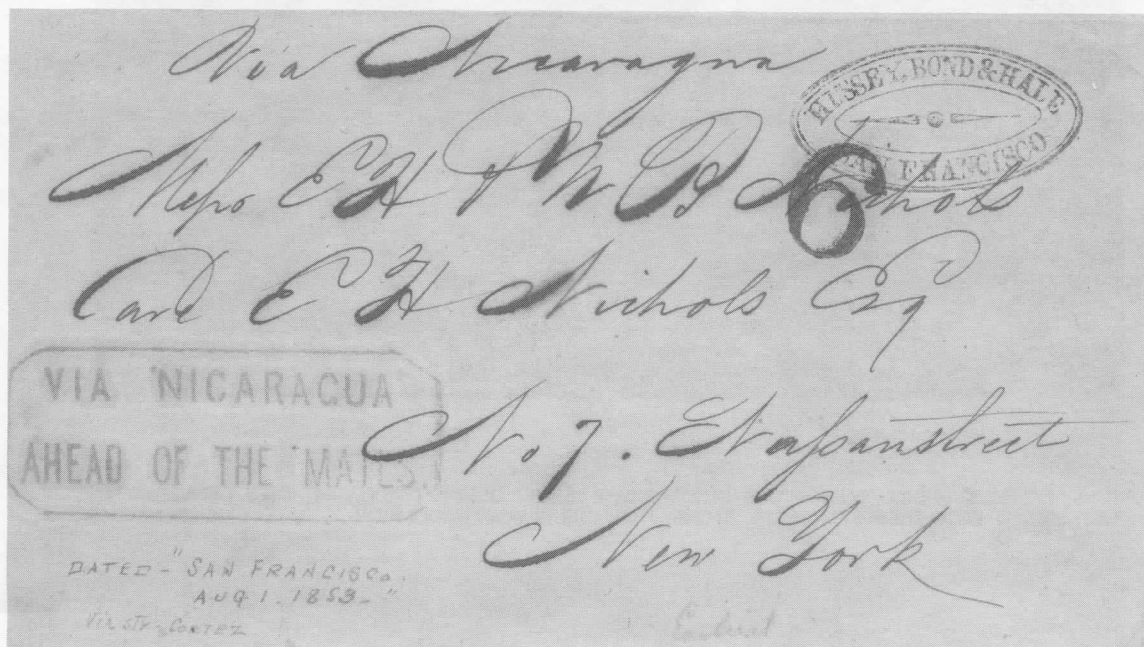 Via Nicaragua
HUSSEY, BOND & HALE
SAN FRANCISCO
6
Messrs E H & W B Nichols
Care E H Nichols Esq
VIA NICARAGUA
AHEAD OF THE MAILS.
No 7. Nassau street
New York
DATED - "SAN FRANCISCO.
AUG 1. 1853 - "
VIA STR. CORTEZ